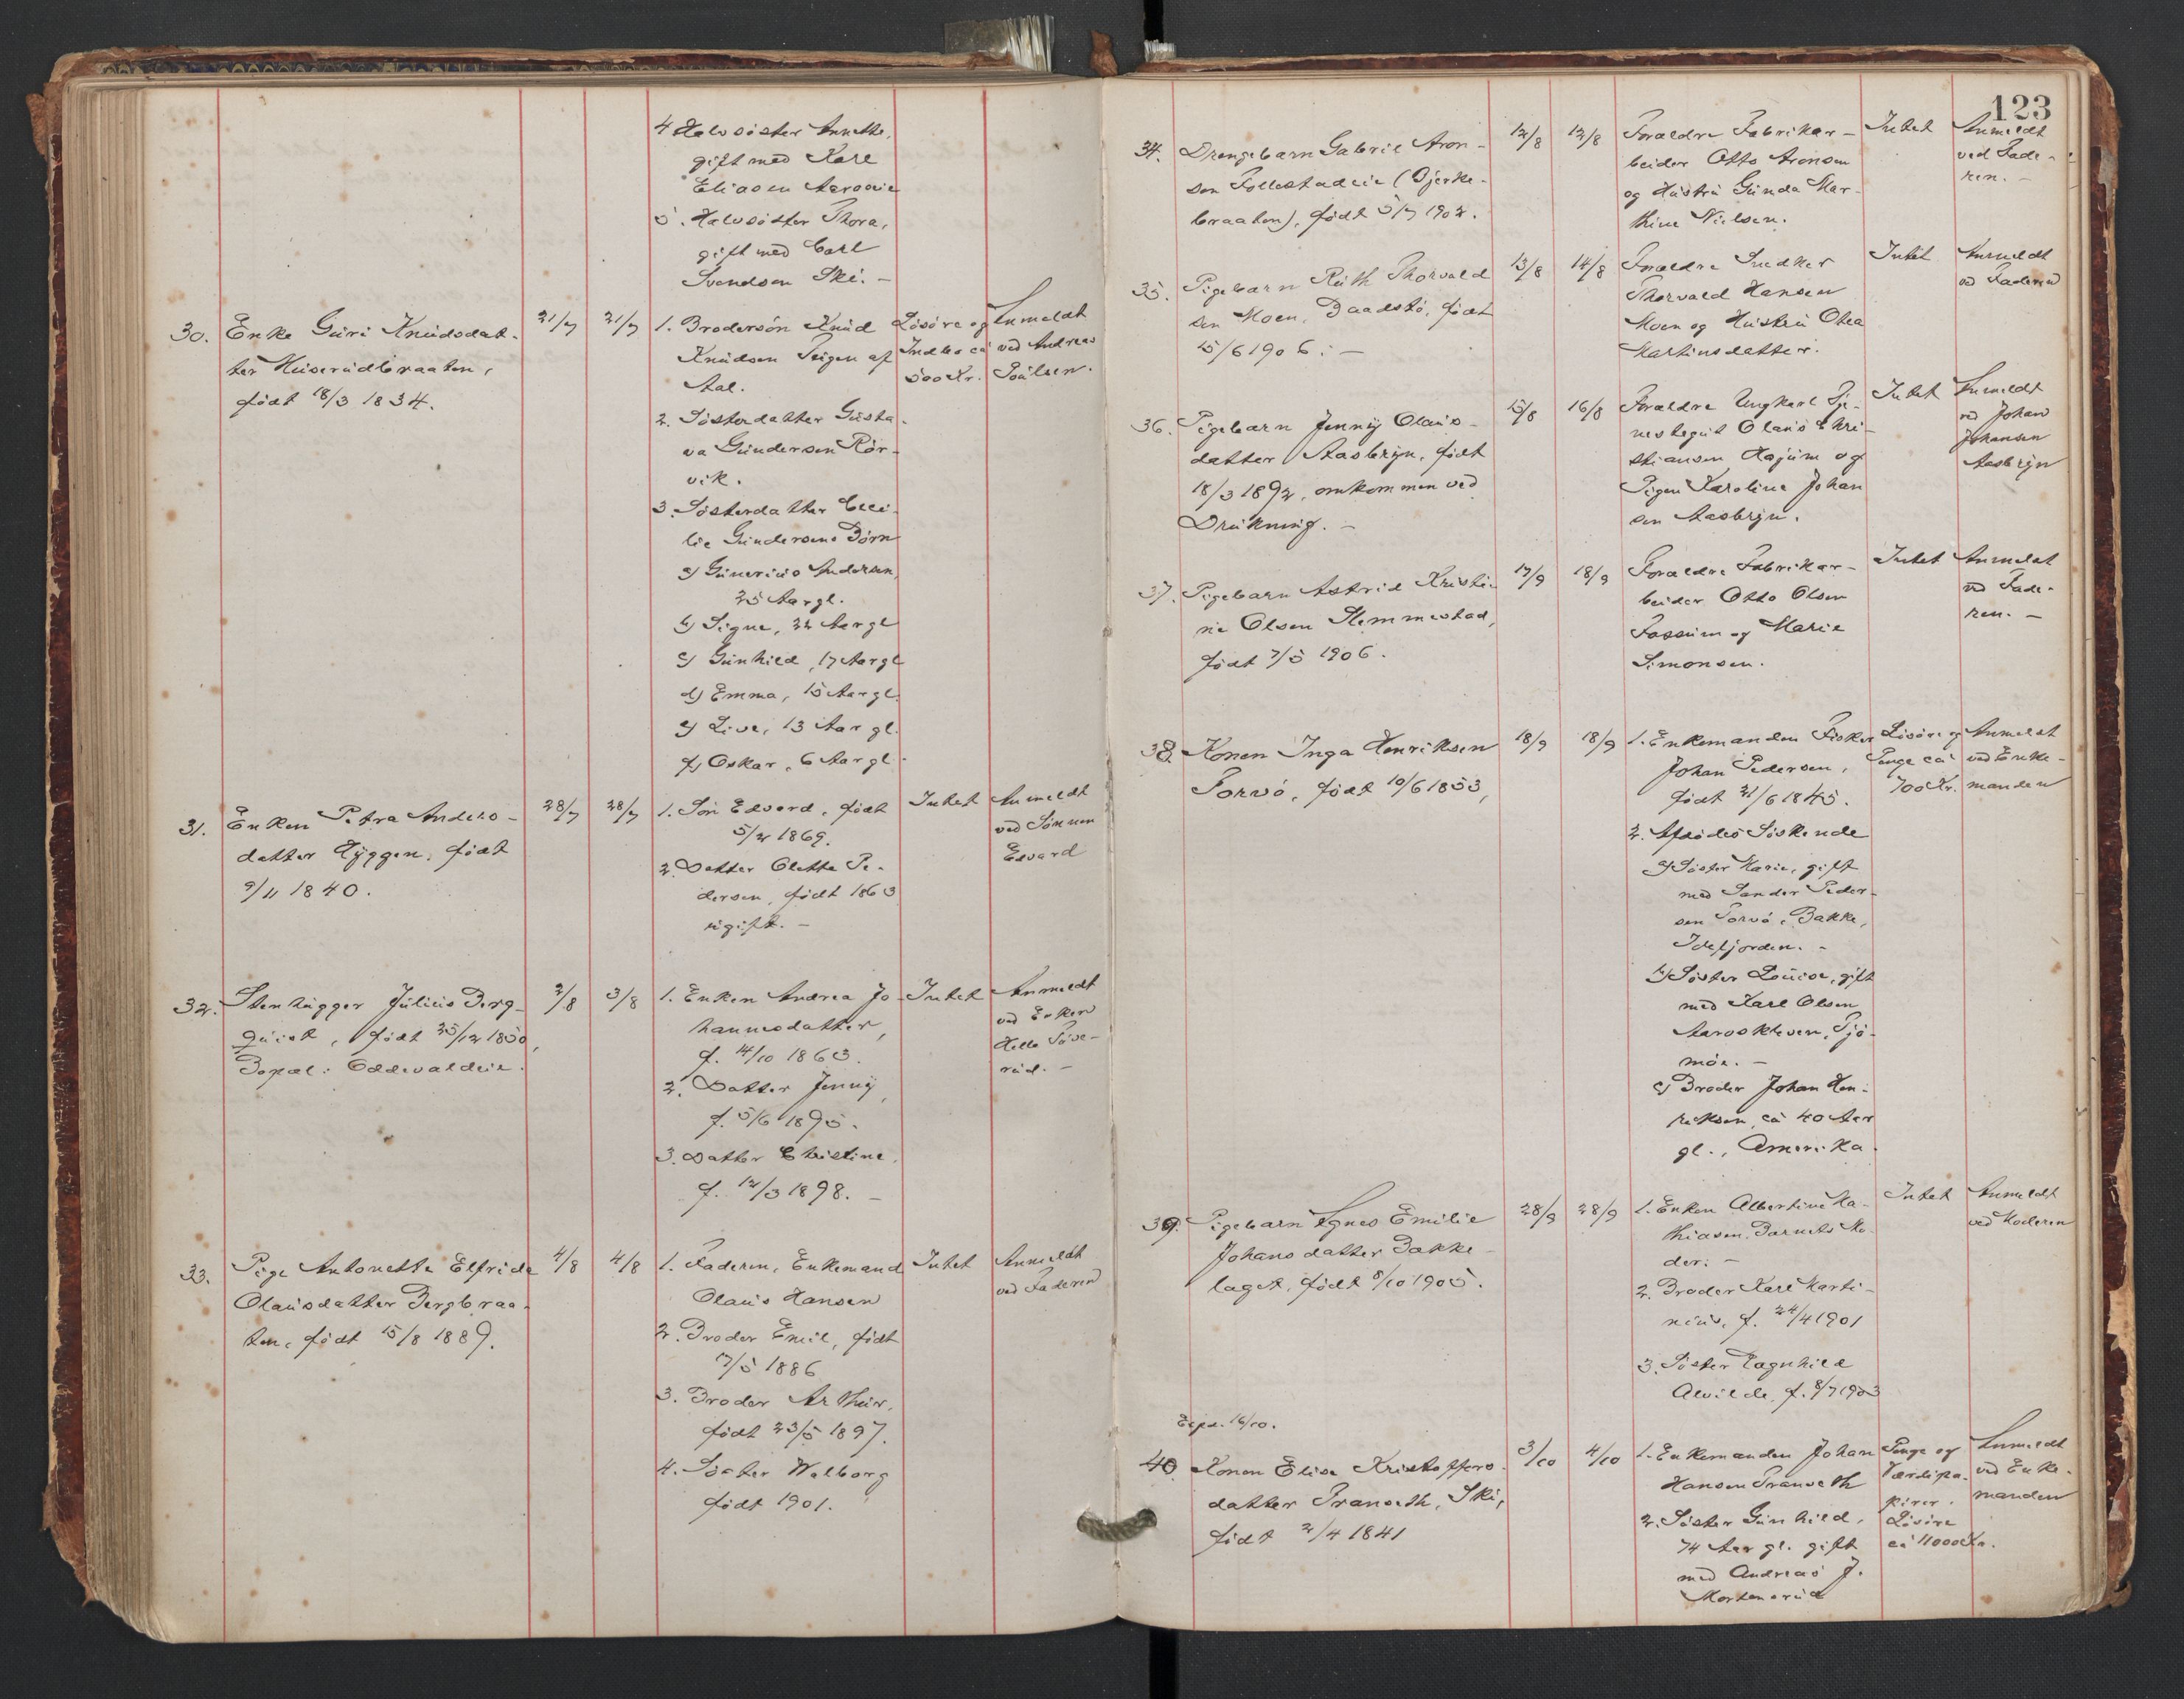 4 Halvsöster Annette,
gift med Karl
Eliasen Aarosvie
5. Halvsöster Thora,
gift med Carl
Svendsen Ski. –
30. Enke Guri Knudsdat-
ter Huserudbraaten,
födt 18/3 1834.
21/7 21/7
1. Brodersön Knud
Knudsen Teigen af
Aal.
2. Sösterdatter Gusta-
va Gundersen Rör-
vik.
3. Sösterdatter Ceci-
lie Gundersens Börn
a) Gunerius Andersen,
25 Aar gl.
b) Signe, 22 Aar gl
c) Gunhild, 17 Aar gl
d) Emma, 15 Aar gl.
e) Live, 13 Aar gl.
f) Oskar, 6 Aar gl.
Lösöre og
Indbo ca
500 Kr.
Anmeldt
ved Andreas
Poulsen.
31. Enken Petra Anders-
datter Hyggen, födt
9/11 1840.
28/7 28/7
1. Sön Edvard, födt
5/2 1869.
2. Datter Olette Pe-
dersen, födt 1863
ugift. –
Intet
Anmeldt
ved Sönnen
Edvard
32. Stenhugger Julius Berg-
quist, födt 25/12 1850,
Bopæl: Oddevaldeie.
2/8 3/8
1. Enken Andrea Jo-
hannesdatter,
f. 14/10 1863.
2. Datter Jenny,
f. 5/6 1895.
3. Datter Christine,
f. 12/3 1898. –
Intet
Anmeldt
ved Enken
rud. –
33. Pige Antonette Elfride
Olausdatter Bergbraa-
ten, födt 15/8 1889.
4/8 4/8
1. Faderen, Enkemand
Olaus Hansen
2. Broder Emil, födt
17/5 1886
3. Broder Arthur,
födt 23/5 1897.
4. Söster Walborg
födt 1901.
Intet
Anmeldt
ved Faderen
123
34. Drengebarn Gabriel Aron-
sen Follestadeie (Bjerke-
braaten), födt 5/7 1902.
12/8 12/8
Forældre Fabrikar-
beider Otto Aronsen
og Hustru Gunda Mar-
thine Nielsen.
Intet
Anmeldt
ved Fade-
ren. –
35. Pigebarn Ruth Thorvald
sen Moen, Baadstö, födt
15/6 1906. –
13/8 14/8
Forældre Snedker
Thorvald Hansen
Moen og Hustru Otea
Martinsdatter.
Intet
Anmeldt
ved Faderen
36. Pigebarn Jenny Olaus-
datter Aasbryn, födt
18/3 1892, omkommen ved
Drukning. –
15/8 16/8
Forældre Ungkarl Tje-
nestegut Olaus Chri-
stiansen Hajum og
Pigen Karoline Johan
sen Aasbryn.
Intet
Anmeldt
ved Johan
Johansen
Aasbryn
37. Pigebarn Astrid Kristi-
ne Olsen Slemmestad,
födt 7/5 1906.
17/9 18/9
Forældre Fabrikar-
beider Otto Olsen
Fossum og Marie
Simonsen.
Intet
Anmeldt
ved Fade-
ren. –
38. Konen Inga Henriksen
Torvö, födt 10/6 1853,
18/9 18/9
1. Enkemanden Fisker
Johan Pedersen,
födt 21/6 1845.
2. Afdödes Söskende
a) Söster Karie, gift
med Sander Peder-
sen Torvö, Bakke,
Idefjorden. –
b) Söster Louise, gift
med Karl Olsen
Aarvoskleven, Tjö-
möe. –
c) Broder Johan Hen-
riksen, ca 40 Aar
gl., Amerika.
Lösöre og
Penge ca
700 Kr.
Anmeldt
ved Enke-
manden
39. Pigebarn Agnes Emilie
Johansdatter Bakke-
laget, födt 8/10 1905.
28/9 28/9
1. Enken Albertine Ma-
thiasen, Barnets Mo-
der. –
2. Broder Karl Marti-
nius, f. 24/4 1901
3. Söster Ragnhild
Alvilde, f. 8/7 1903
Intet
Anmeldt
ved Moderen
Exped. 16/10.
40. Konen Elise Kristoffers-
datter Transeth, Ski,
födt 2/4 1841
3/10 4/10
1. Enkemanden Johan
Hansen Transeth
2. Söster Gunhild,
74 Aar gl. gift
med Andreas J.
Mortensrud
Penge og
Værdipa-
pirer.
Lösöre
ca 11000 Kr.
Anmeldt
ved Enke-
manden